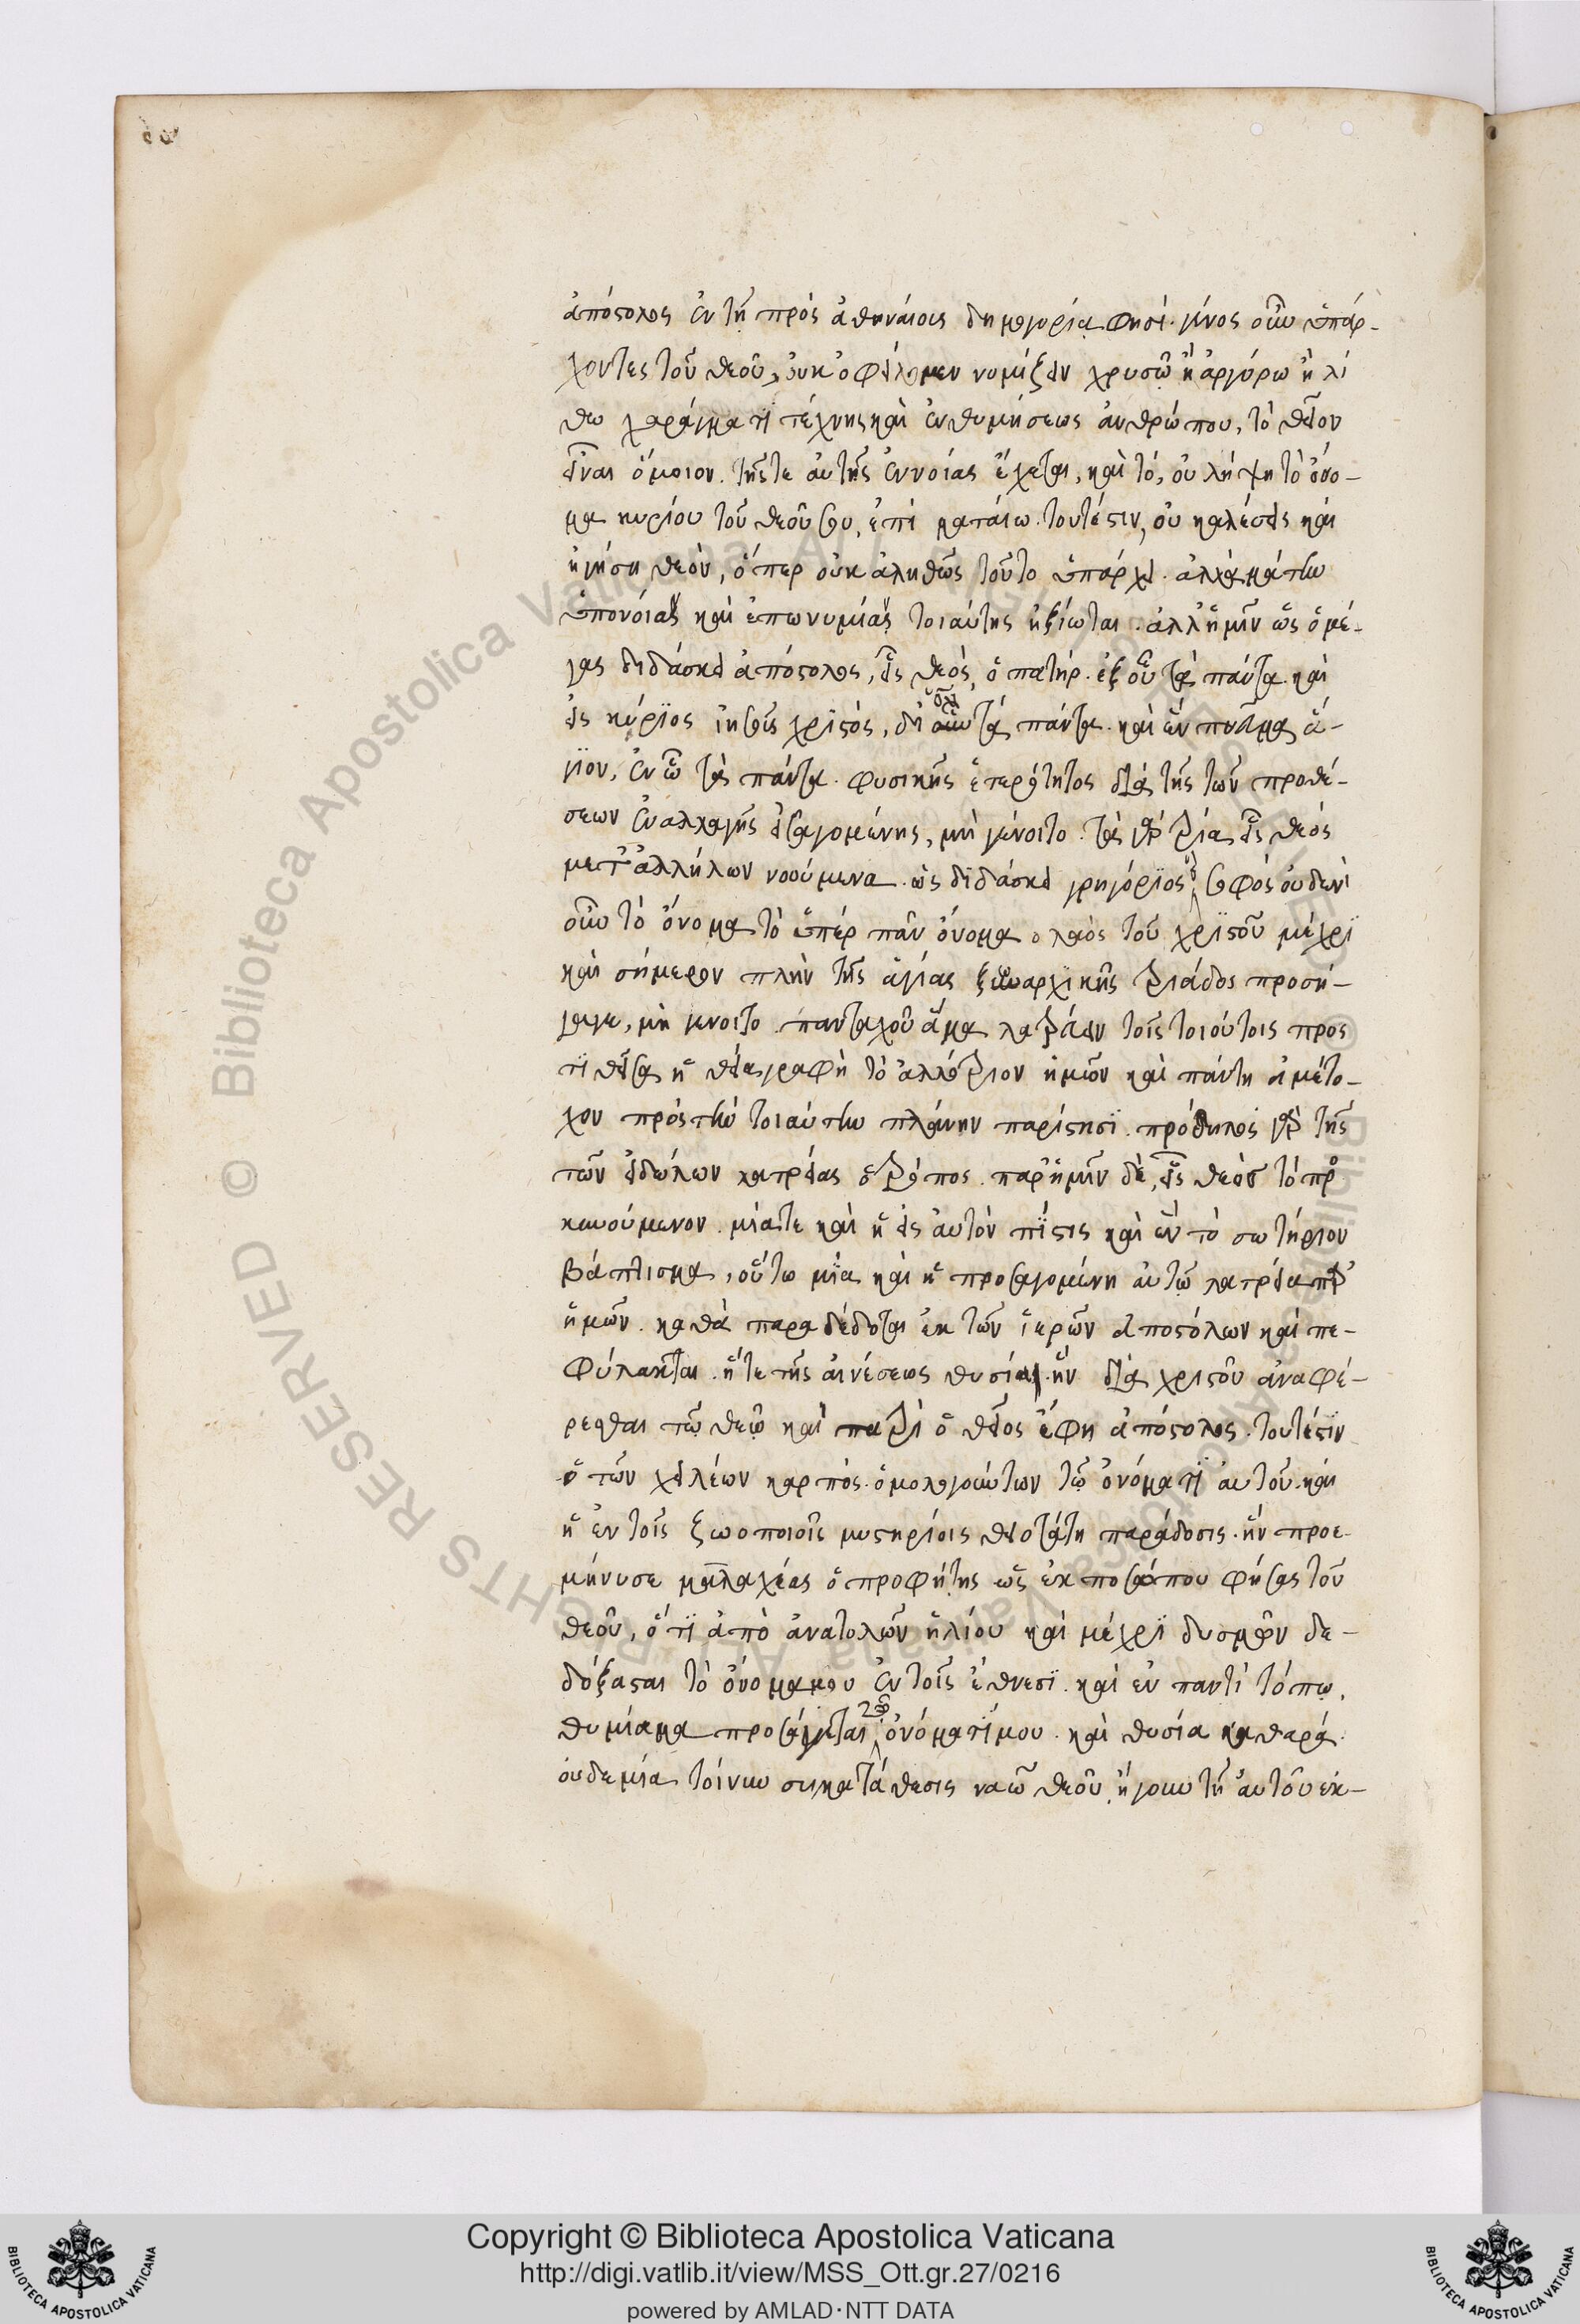 ἀπόστολος ἐν τῇ πρὸς ἀθηναίοις δημηγορίᾳ φησί. γένος οὖν ὑπάρ-
χοντες τοῦ θεοῦ, οὐκ ὀφείλομεν νομίζειν χρυσῶ ἢ ἀργύρω ἢ λί
θω χαράγματι τέχνης καὶ ἐνθυμήσεως ἀνθρώπου, τὸ θεῖον
εἶναι ὅμοιον. τῆς τε αὐτῆς ἐννοίας ἔχεται, καὶ τό, οὐ λήψη τὸ ὄνο-
μα κυρίου τοῦ θεοῦ σου, ἐπὶ ματαίω. τουτέστιν, οὐ καλέσεις καὶ
ἡγήση θεὸν, ὅπερ οὐκ ἀληθῶς τοῦτο ὑπάρχει. ἀλλὰ μάτην
ὑπονοίας καὶ ἐπωνυμίας τοιαύτης ἠξίωται. ἀλλ' ἡμῖν ὡς ὁ μέ-
γας διδάσκει ἀπόστολος, εἷς θεὸς, ὁ πατὴρ. ἐξ οὗ τὰ πάντα. καὶ
εἷς κύριος ἰησοῦς χριστὸς, δι' οὗ τὰ πάντα. καὶ ἓν πνεῦμα ἅ-
γιον, ἐν ὧ τὰ πάντα. φυσικῆς ἑτερότητος διὰ τῆς τῶν προθέ-
σεων ἐναλλαγῆς εἰσαγομένης, μὴ γένοιτο. τὰ γὰρ τρία εἷς θεὸς
μετ' ἀλλήλων νοούμενα. ὡς διδάσκει γρηγόριος ὁ σοφός οὐδενὶ
οὖν τὸ ὄνομα τὸ ὑπὲρ πᾶν ὄνομα ὁ λαὸς τοῦ χριστοῦ μέχρι
καὶ σήμερον πλὴν τῆς ἁγίας ζωαρχικῆς τριάδος προσή-
γαγε, μὴ γενοιτο. πανταχοῦ ἅμα λατρείαν τοῖς τοιούτοις προσ
τιθεῖσα ἡ θεία γραφὴ τὸ ἀλλότριον ἡμῶν καὶ πάντη ἀμέτο-
χον πρὸς τὴν τοιαύτην πλάνην παρίστησι. πρόδηλος γὰρ τῆς
τῶν εἰδώλων λατρείας ὁ τρόπος. παρ' ἡμῖν δὲ, εἷς θεὸς τὸ προσ
κυνούμενον. μία τε καὶ ἡ εἰς αὐτὸν πίστις καὶ ἓν τὸ σωτήριον
βάπτισμα, οὕτω μία καὶ ἡ προσαγομένη αὐτῶ λατρεία παρ'
ἡμῶν. καθὰ παραδέδοται ἐκ τῶν ἱερῶν ἀποστόλων καὶ πε-
φύλακται. ἥ τε τῆς αἰνέσεως θυσία. ἣν διὰ χριστοῦ ἀναφέ-
ρεσθαι τῶ θεῶ καὶ πατρὶ ὁ θεῖος ἔφη ἀπόστολος. τουτέστιν
ὁ τῶν χειλέων καρπὸς ὁμολογούντων τῶ ὀνόματι αὐτοῦ. καὶ
ἡ ἐν τοῖς ζωοποιοῖς μυστηρίοις θειοτάτη παράδοσις. ἣν προε-
μήνυσε μαλαχίας ὁ προφήτης ὡς ἐκ προσώπου φήσας τοῦ
θεοῦ, ὅτι ἀπὸ ἀνατολῶν ἡλίου καὶ μέχρι δυσμῶν δε-
δόξασται τὸ ὄνομα μου ἐν τοῖς ἔθνεσι. καὶ ἐν παντὶ τόπῳ,
θυμίαμα προσάγεται τῶ ὀνόματί μου. καὶ θυσία καθαρά.
οὐδεμία τοίνυν συγκατάθεσις ναῶ θεοῦ, ἤγουν τῆ αὐτοῦ ἐκ-